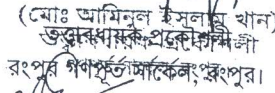 (মোঃ আমিনুল ইসলাম খান)
তত্ত্বাবধায়ক প্রকৌশলী
রংপুর গণপূর্ত সার্কেল, রংপুর।